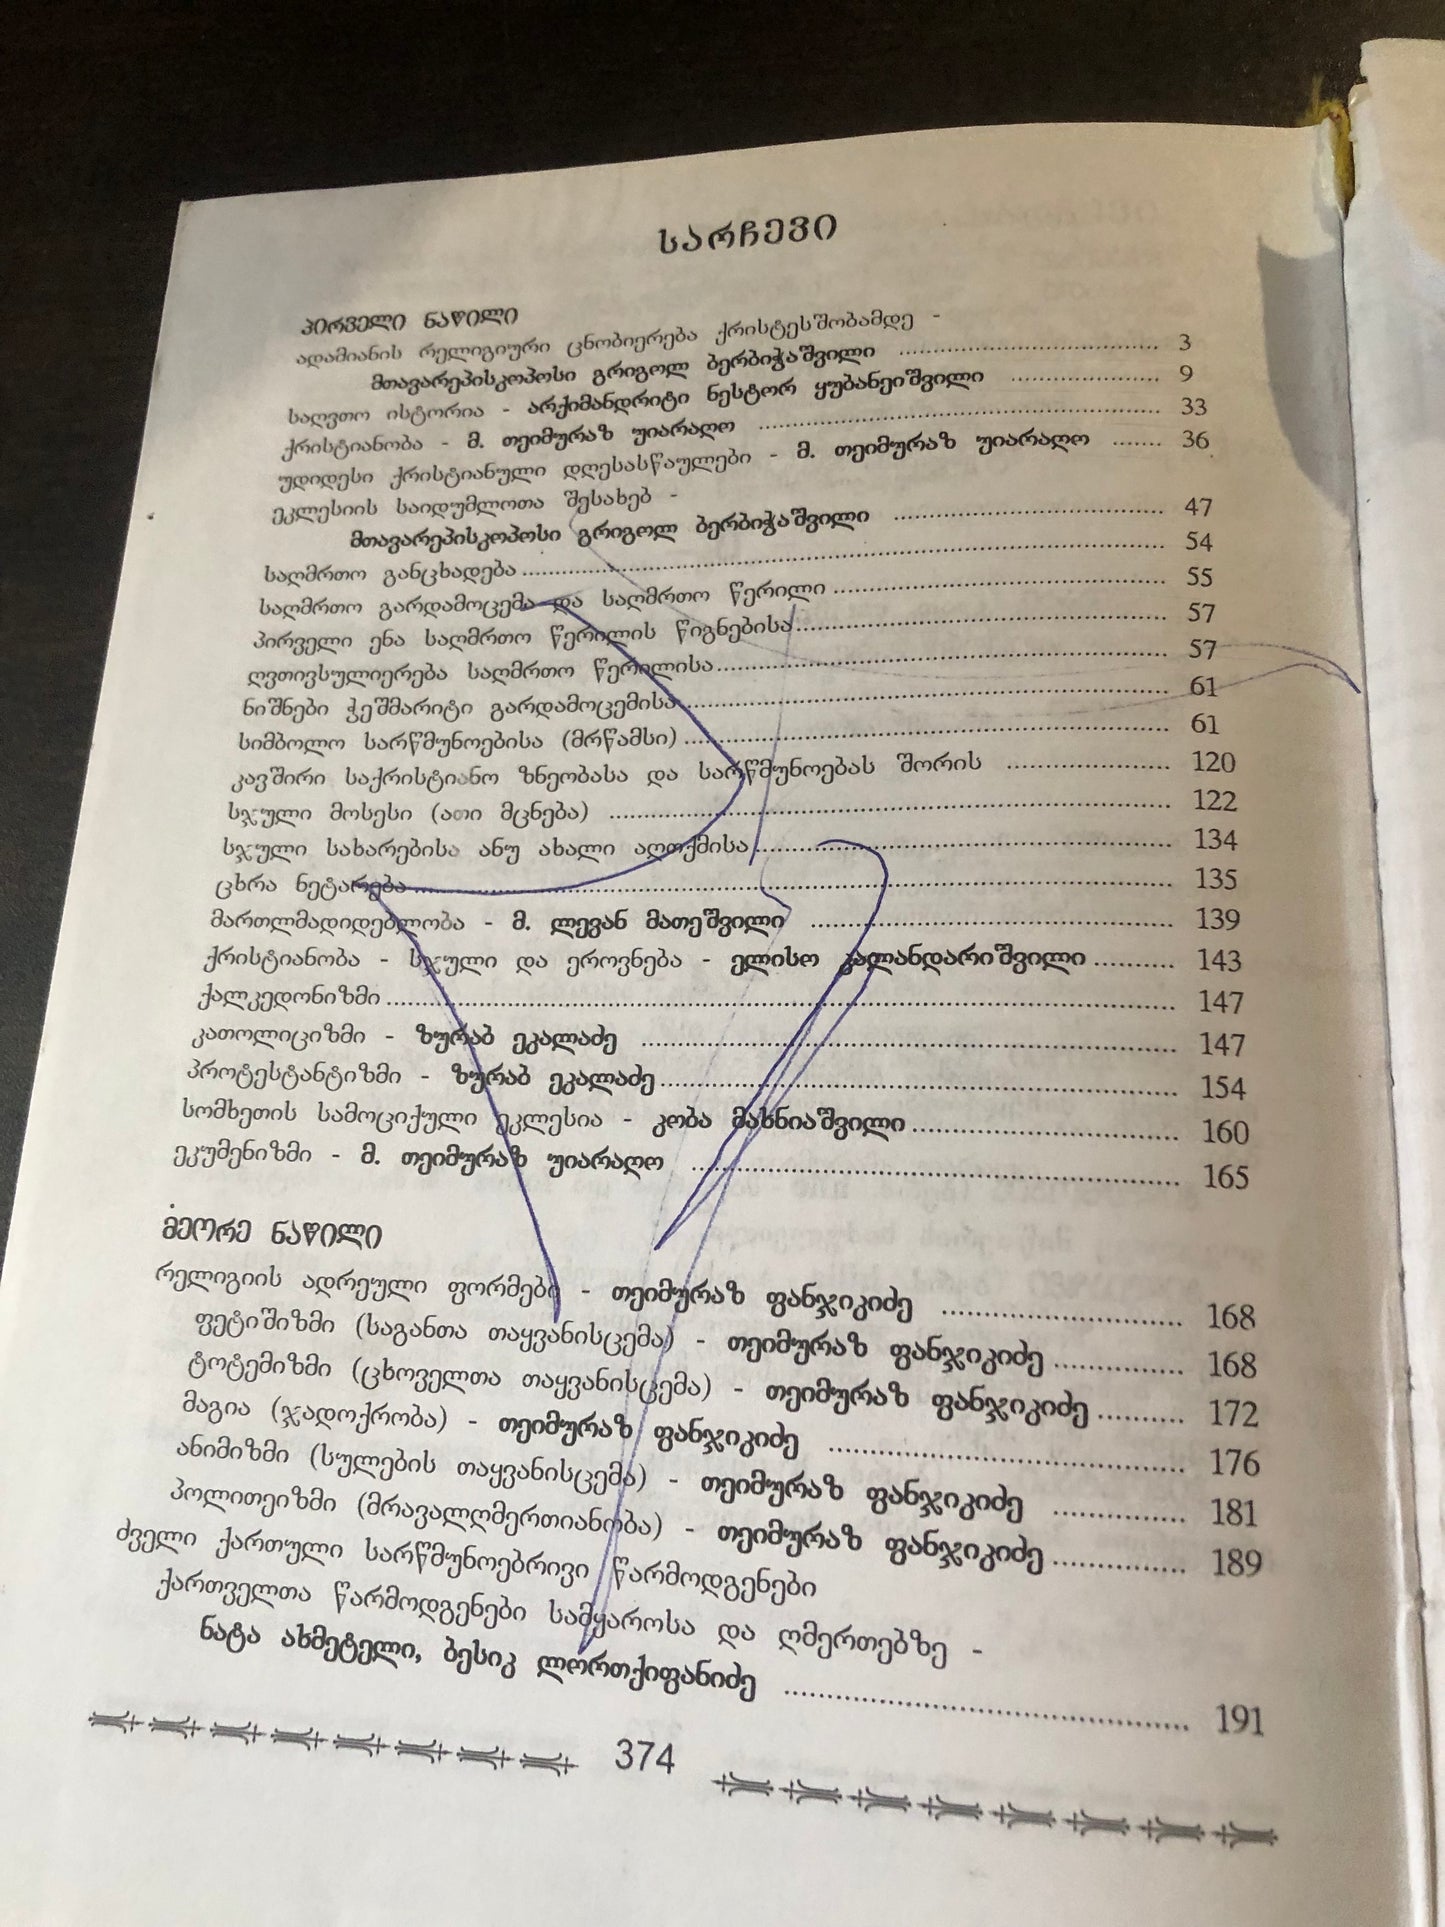 სარჩევი
პირველი ნაწილი
ადამიანის რელიგიური ცნობიერება ქრისტეშობამდე -
მთავარეპისკოპოსი გრიგოლ ბერბიჭაშვილი ........ 3
საღვთო ისტორია - არქიმანდრიტი ნესტორ ყუბანეიშვილი ........ 9
ქრისტიანობა - მ. თეიმურაზ უიარაღო ........ 33
უდიდესი ქრისტიანული დღესასწაულები - მ. თეიმურაზ უიარაღო ....... 36
ეკლესიის საიდუმლოთა შესახებ -
მთავარეპისკოპოსი გრიგოლ ბერბიჭაშვილი ........ 47
საღმრთო განცხადება ........ 54
საღმრთო გარდამოცემა და საღმრთო წერილი ........ 55
პირველი ენა საღმრთო წერილის წიგნებისა ........ 57
ღვთივსულიერება საღმრთო წერილისა ........ 57
ნიშნები ჭეშმარიტი გარდამოცემისა ........ 61
სიმბოლო სარწმუნოებისა (მრწამსი) ........ 61
კავშირი საქრისტიანო ზნეობასა და სარწმუნოებას შორის ........ 120
სჯული მოსესი (ათი მცნება) ........ 122
სჯული სახარებისა ანუ ახალი აღთქმისა ........ 134
ცხრა ნეტარება ........ 135
მართლმადიდებლობა - მ. ლევან მათეშვილი ........ 139
ქრისტიანობა - სჯული და ეროვნება - ელისო კალანდარიშვილი .......... 143
ქალკედონიზმი ........ 147
კათოლიციზმი - ზურაბ ეკალაძე ........ 147
პროტესტანტიზმი - ზურაბ ეკალაძე ........ 154
სომხეთის სამოციქული ეკლესია - კობა მახნიაშვილი ........ 160
ეკუმენიზმი - მ. თეიმურაზ უიარაღო ........ 165
მეორე ნაწილი
რელიგიის ადრეული ფორმები - თეიმურაზ ფანჯიკიძე ........ 168
ფეტიშიზმი (საგანთა თაყვანისცემა) - თეიმურაზ ფანჯიკიძე ........ 168
ტოტემიზმი (ცხოველთა თაყვანისცემა) - თეიმურაზ ფანჯიკიძე .......... 172
მაგია (ჯადოქრობა) - თეიმურაზ ფანჯიკიძე ........ 176
ანიმიზმი (სულების თაყვანისცემა) - თეიმურაზ ფანჯიკიძე ........ 181
პოლითეიზმი (მრავალღმერთიანობა) - თეიმურაზ ფანჯიკიძე ........ 189
ძველი ქართული სარწმუნოებრივი წარმოდგენები
ქართველთა წარმოდგენები სამყაროსა და ღმერთებზე -
ნატა ახმეტელი, ბესიკ ლორთქიფანიძე ........ 191
374